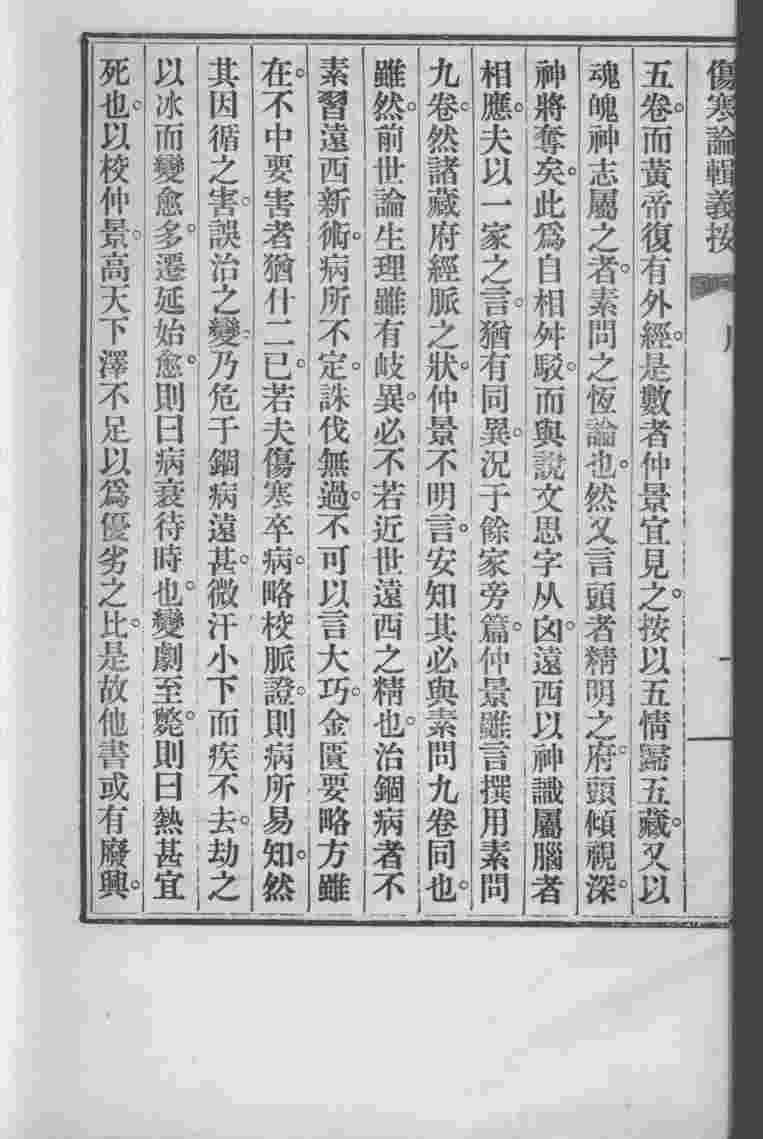 傷寒論輯義按
五卷。而黃帝復有外經。是數者仲景宜見之。按以五情歸五藏。又以
魂魄神志屬之者。素問之恆論也。然又言頭者精明之府。頭傾視深。
神將奪矣。此爲自相舛駁。而與說文思字从囟。遠西以神識屬腦者
相應。夫以一家之言。猶有同異。況于餘家旁篇。仲景雖言撰用素問
九卷。然諸藏府經脈之狀。仲景不明言。安知其必與素問九卷同也。
雖然。前世論生理雖有岐異。必不若近世遠西之精也。治錮病者不
素習遠西新術。病所不定。誅伐無過。不可以言大巧。金匱要略方雖
在。不中要害者猶什二已。若夫傷寒卒病。略校脈證。則病所易知。然
其因循之害。誤治之變。乃危于錮病遠甚。微汗小下而疾不去。劫之
以冰而變愈多。遷延始愈。則曰病衰待時也。變劇至斃。則曰熱甚宜
死也。以校仲景。高天下澤不足以爲優劣之比。是故他書或有廢興。